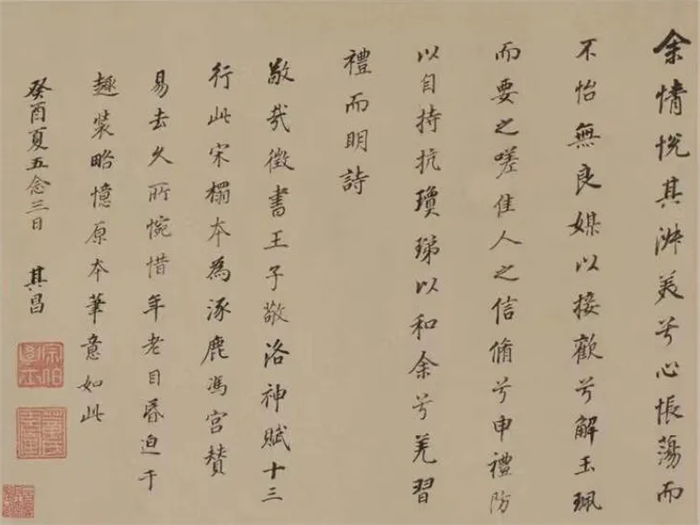 余情悅其淑美兮心悵蕩而
不怡無良媒以接歡兮解玉珮
而要之嗟佳人之信脩兮申禮防
以自持抗瓊珶以和余兮羌習
禮而明詩
敬哉徵書王子敬洛神賦十三
行此宋榻本為涿鹿馮宮贊
易去久所惋惜年老目昏迫于
趣裝略憶原本筆意如此
癸酉夏五念三日 其昌
宗伯學士
董氏玄宰